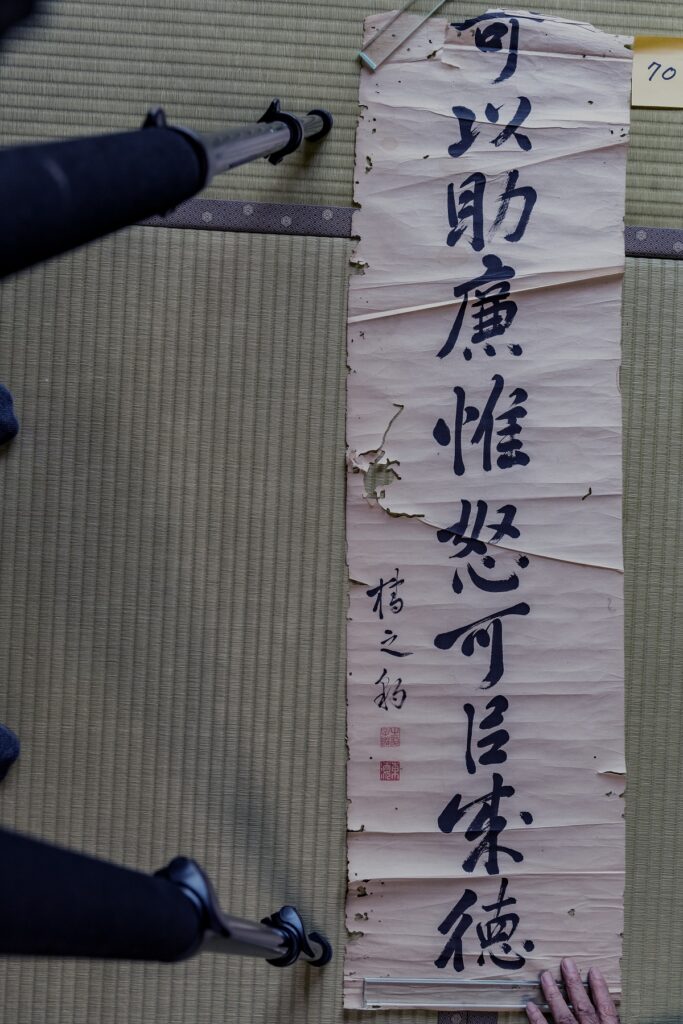 70
可以助廉惟恕可㠯成德
之豹